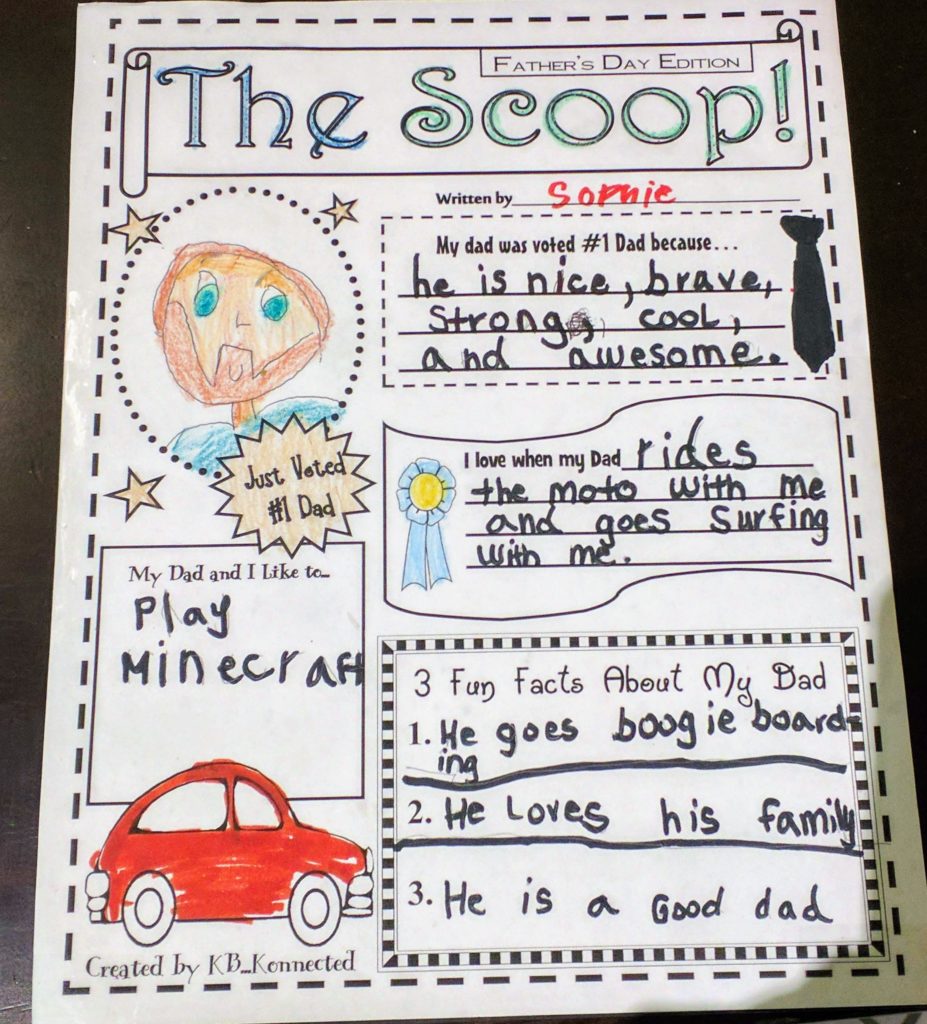 FATHER'S DAY EDITION
The Scoop!
Written by Sophie
My dad was voted #1 Dad because...
he is nice, brave,
strong, cool,
and awesome.
Just Voted
#1 Dad
I love when my Dad rides
the moto with me
and goes surfing
with me.
My Dad and I Like to...
Play
Minecraft
3 Fun Facts About My Dad
1. He goes boogie board-
ing
2. He Loves his family
3. He is a Good dad
Created by KB...Konnected